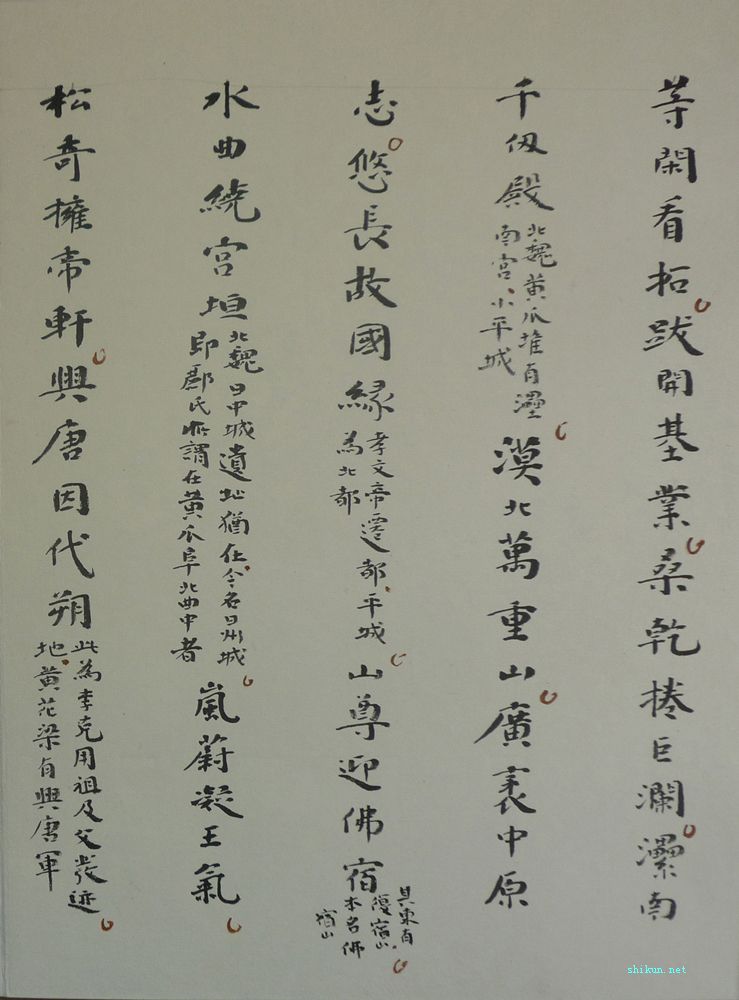 等閑看拓跋開基業桑乾捲巨瀾灅南
千仭殿北魏黄瓜堆有灅南宫小平城漠北萬重山廣袤中原
志悠長故國緣孝文帝遷都平城為北都山尊迎佛宿其東有復宿山本名佛宿山
水曲繞宮垣北魏日中城遺址猶在今名日州城即酈氏所謂在黄瓜阜北曲中者嵐蔚凝王氣
松奇擁帝軒興唐因代朔此為李克用祖及父發迹地黄花梁有興唐軍
shikun.net